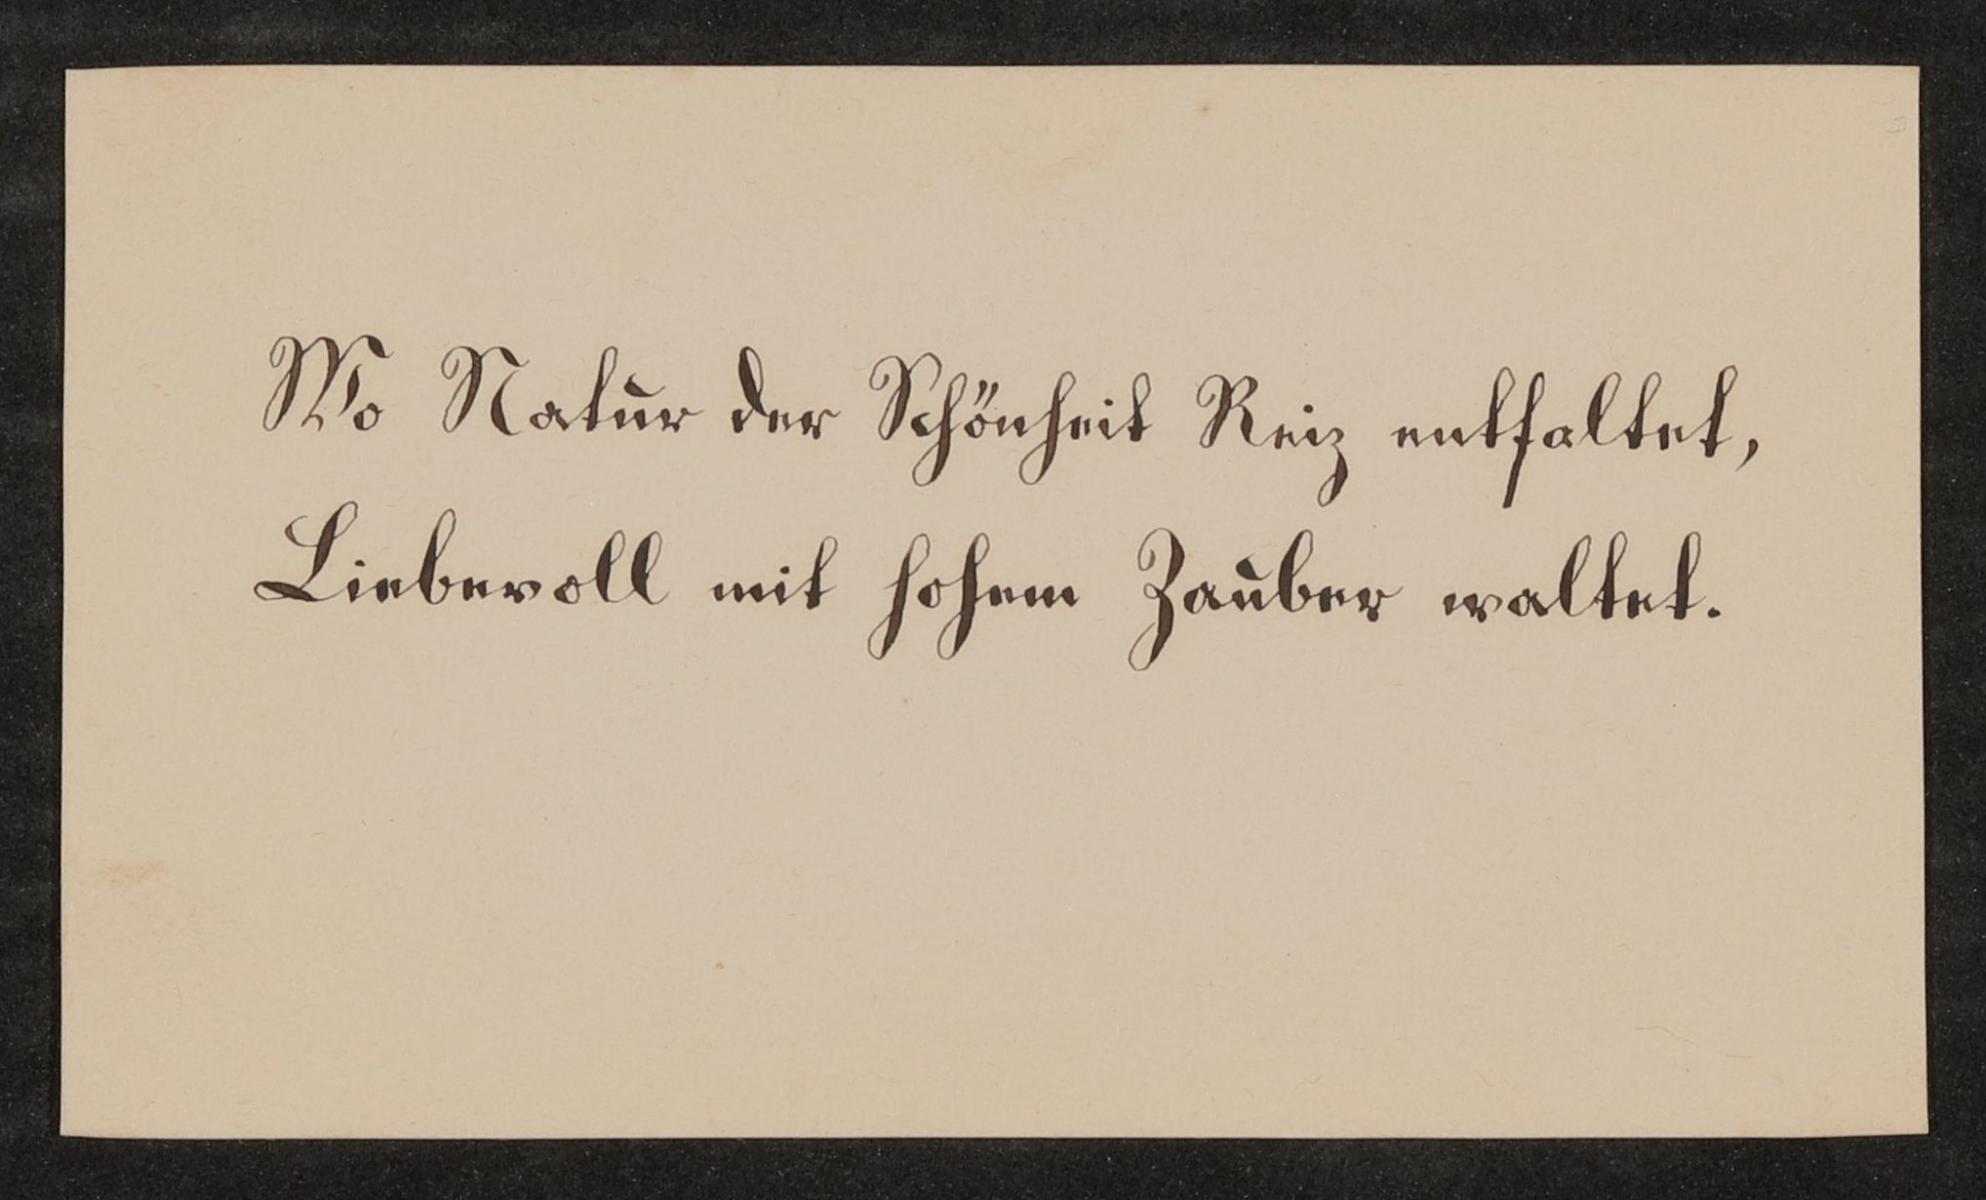 Wo Natur der Schönheit Reiz entfaltet,
Liebevoll mit hohem Zauber waltet.